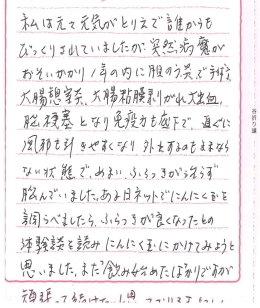 私は元々元気がとりえで誰からも
びっくりされていましたが、突然病魔が
おそいかかり1年の内に胆のう炎で手術、
大腸憩室炎、大腸粘膜剥がれ大出血、
脳梗塞となり免疫力も低下で、直ぐに
風邪も引きやすくなり外出するのもままなら
ない状態で、めまい、ふらつきが治らず
悩んでいました。ある日ネットでにんにく玉を
調べましたら、ふらつきが良くなったとの
体験談を読みにんにく玉にかけてみようと
思いました。まだ飲み始めたばかりですが
頑張って続けたい